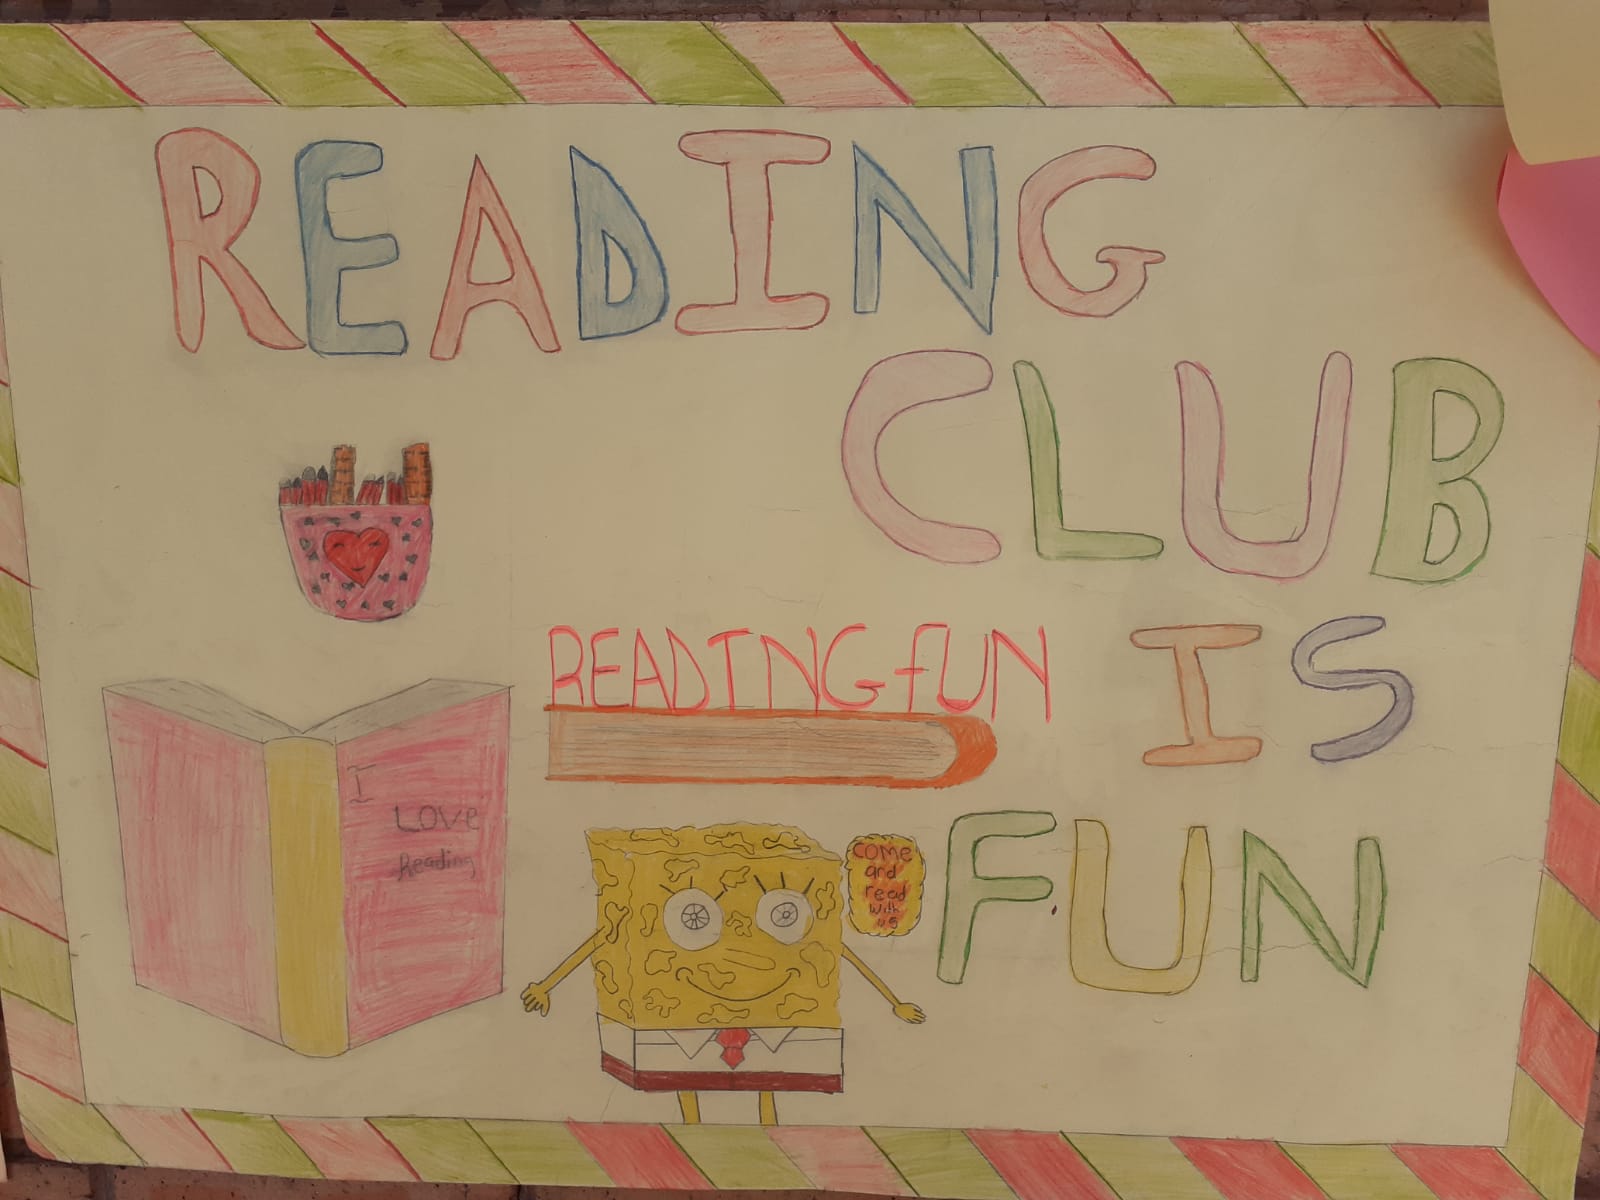 READING
CLUB
READING FUN
IS
FUN
I
LOVE
Reading
COME
and
read
with
us